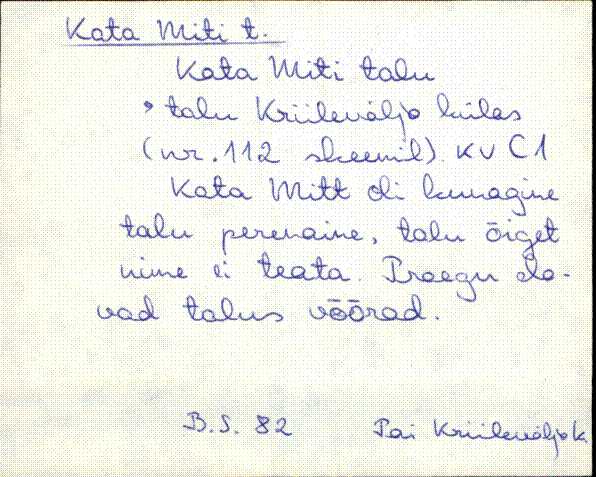 Kata Miti t.
Kata Miti talu
talu Kriilevälja külas
(nr. 112 skeemil). KV C1
Kata Mitt oli kunagine
talu perenaine, talu õiget
nime ei teata. Praegu ela-
vad talus võõrad.
B.S. 82 Pai Kriilevälja k